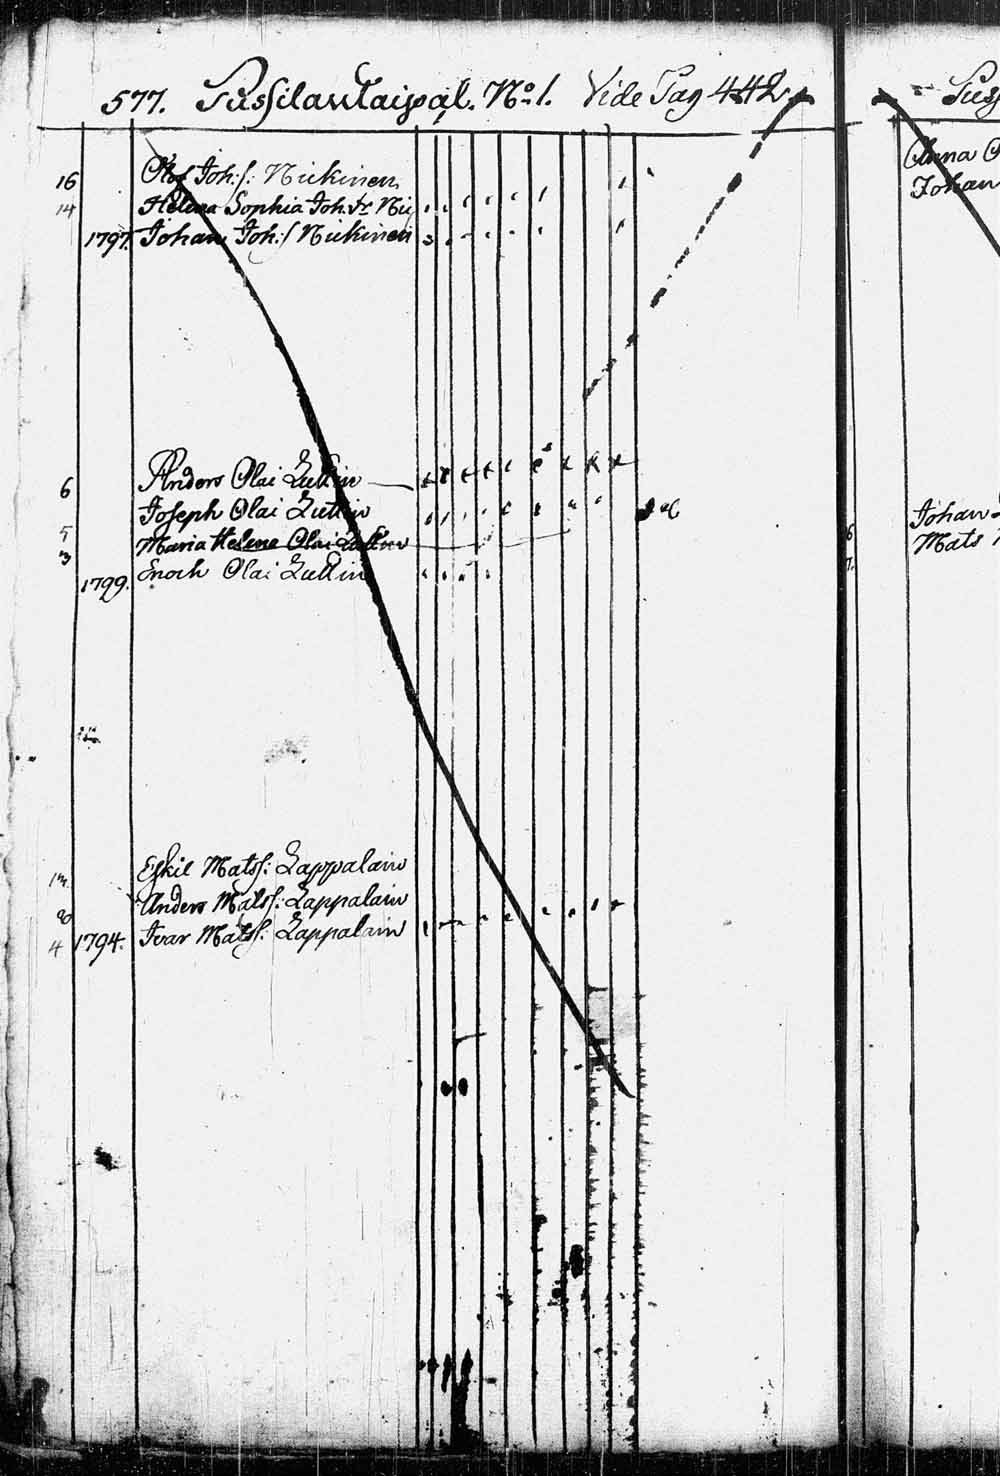 577. Sussilantaipal. No 1. Vide Pag 442
16 Olof Joh:s: Nickinen
14 Helena Sophia Joh.dr Nic
1797. Johan Joh:s Nickinen
6 Anders Olai Luttin
5 Joseph Olai Luttin
3 Maria Helena Olai Luttin
1799. Enoch Olai Luttin
Eskil Matss: Lappalain
8 Anders Matss: Lappalain
4 1794. Ivar Matss: Lappalain
Suss
Anna
Johan
6 Johan
7. Mats